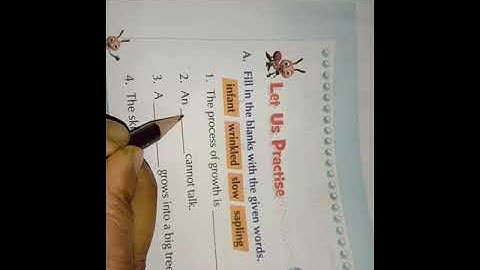 Let Us Practise
A. Fill in the blanks with the given words.
infant wrinkled slow sapling
1. The process of growth is
2. An ______ cannot talk.
3. A ______ grows into a big tree
4. The